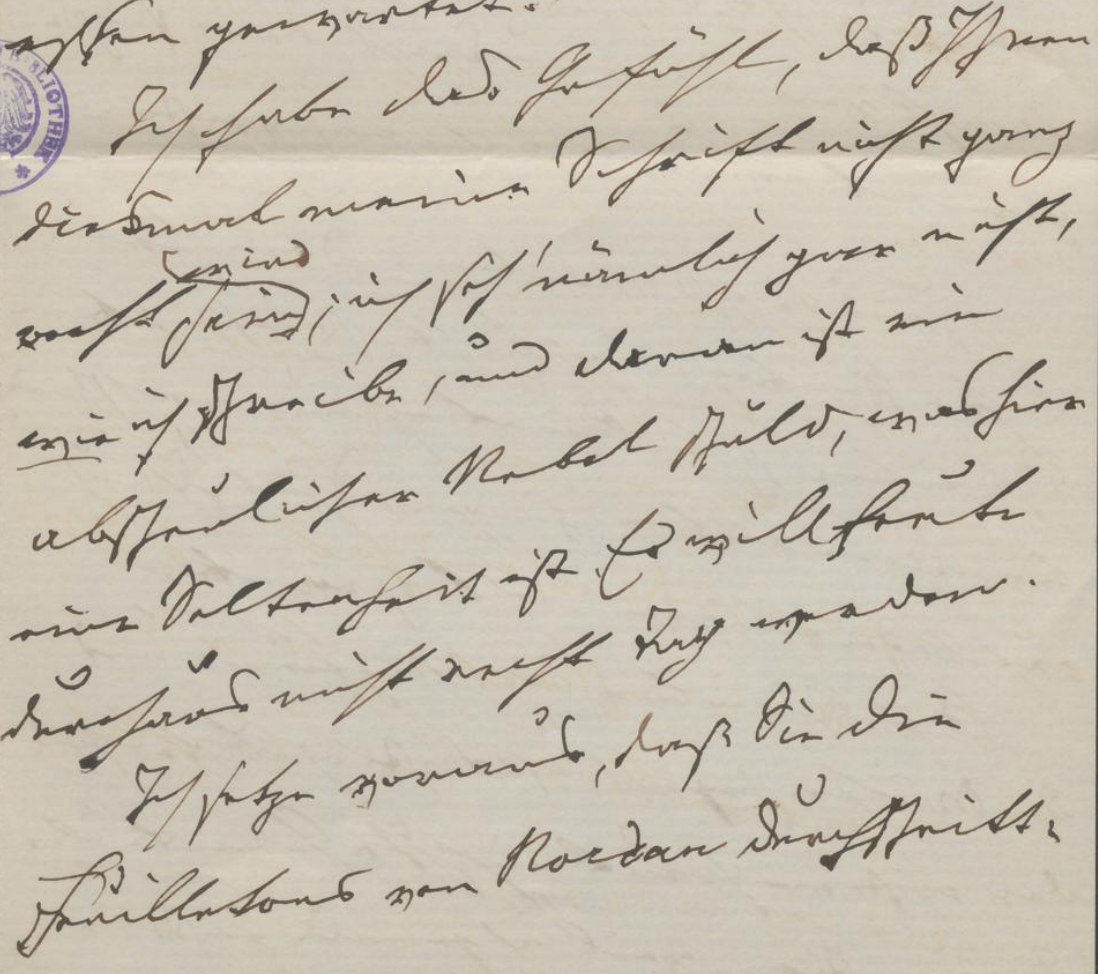 gewartet.
Ich habe das Gefühl, daß Ihnen
BIBLIOTHEK
diesmal meine Schrift nicht ganz
wird
recht sein; ich seh' nämlich gar nicht,
wie ich schreibe, und daran ist ein
abscheulicher Nebel schuld, was hier
eine Seltenheit ist. Es will heute
durchaus nicht recht Tag werden.
Ich setze voraus, daß Sie die
Feuilletons von Nordau durchschnitt-